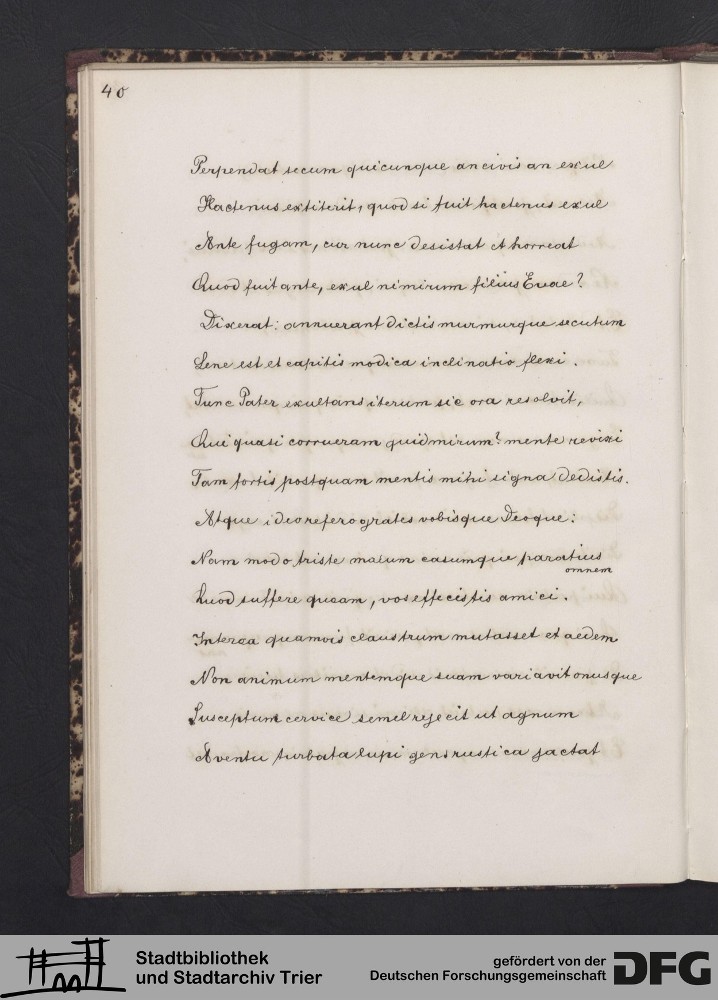 40
Perpendat secum quicunque an civis an exul
Hactenus extiterit, quod si fuit hactenus exul
Ante fugam, cur nunc desistat et horreat
Quod fuit ante, exul nimirum filius Evae?
Dixerat: annuerant dictis murmurque secutum
Lene est et capitis modica inclinatio flexi.
Tunc Pater exultans iterum sic ora resolvit,
Qui quasi corrueram quid mirum? mente revixi
Tam fortis postquam mentis mihi signa dedistis.
Atque ideo refero grates vobisque Deoque:
Nam modo triste malum casumque paratius
omnem
Quod suffere queam, vos effecistis amici.
Interea quamvis claustrum mutasset et aedem
Non animum mentemque suam variavit onusque
Susceptum cervice semel rejecit ut agnum
Aventu turbata lupi gens rustica jactat
Stadtbibliothek
und Stadtarchiv Trier
gefördert von der
Deutschen Forschungsgemeinschaft
DFG